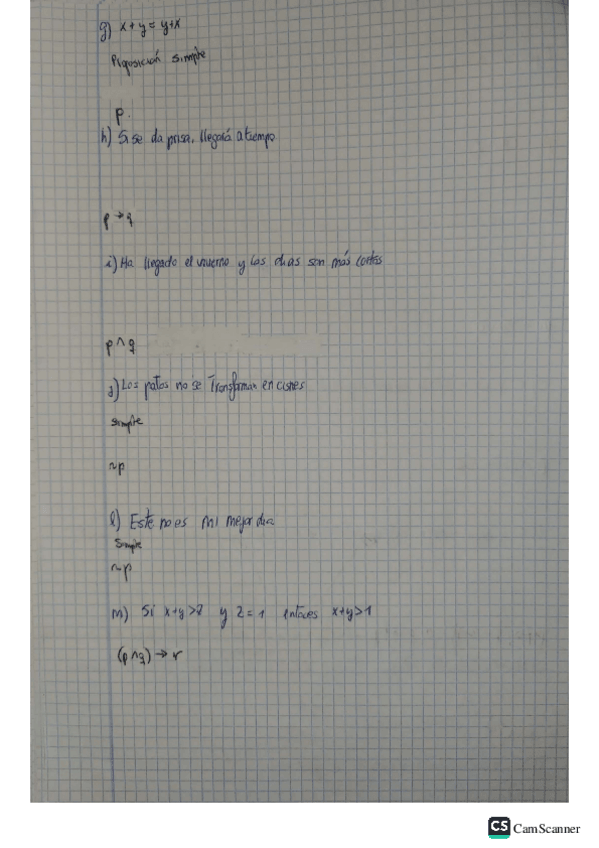 g) x + y = y + x
Proposición simple
p.
h) Si se da prisa, llegará a tiempo
p → q
i) Ha llegado el invierno y los días son más cortos
p ∧ q
j) Los patos no se Transforman en cisnes
simple
~p
l) Este no es mi mejor dia
Simple
~p
m) Si x+y>z y z = 1 entoces x+y>1
(p ∧ q) → r
CS CamScanner